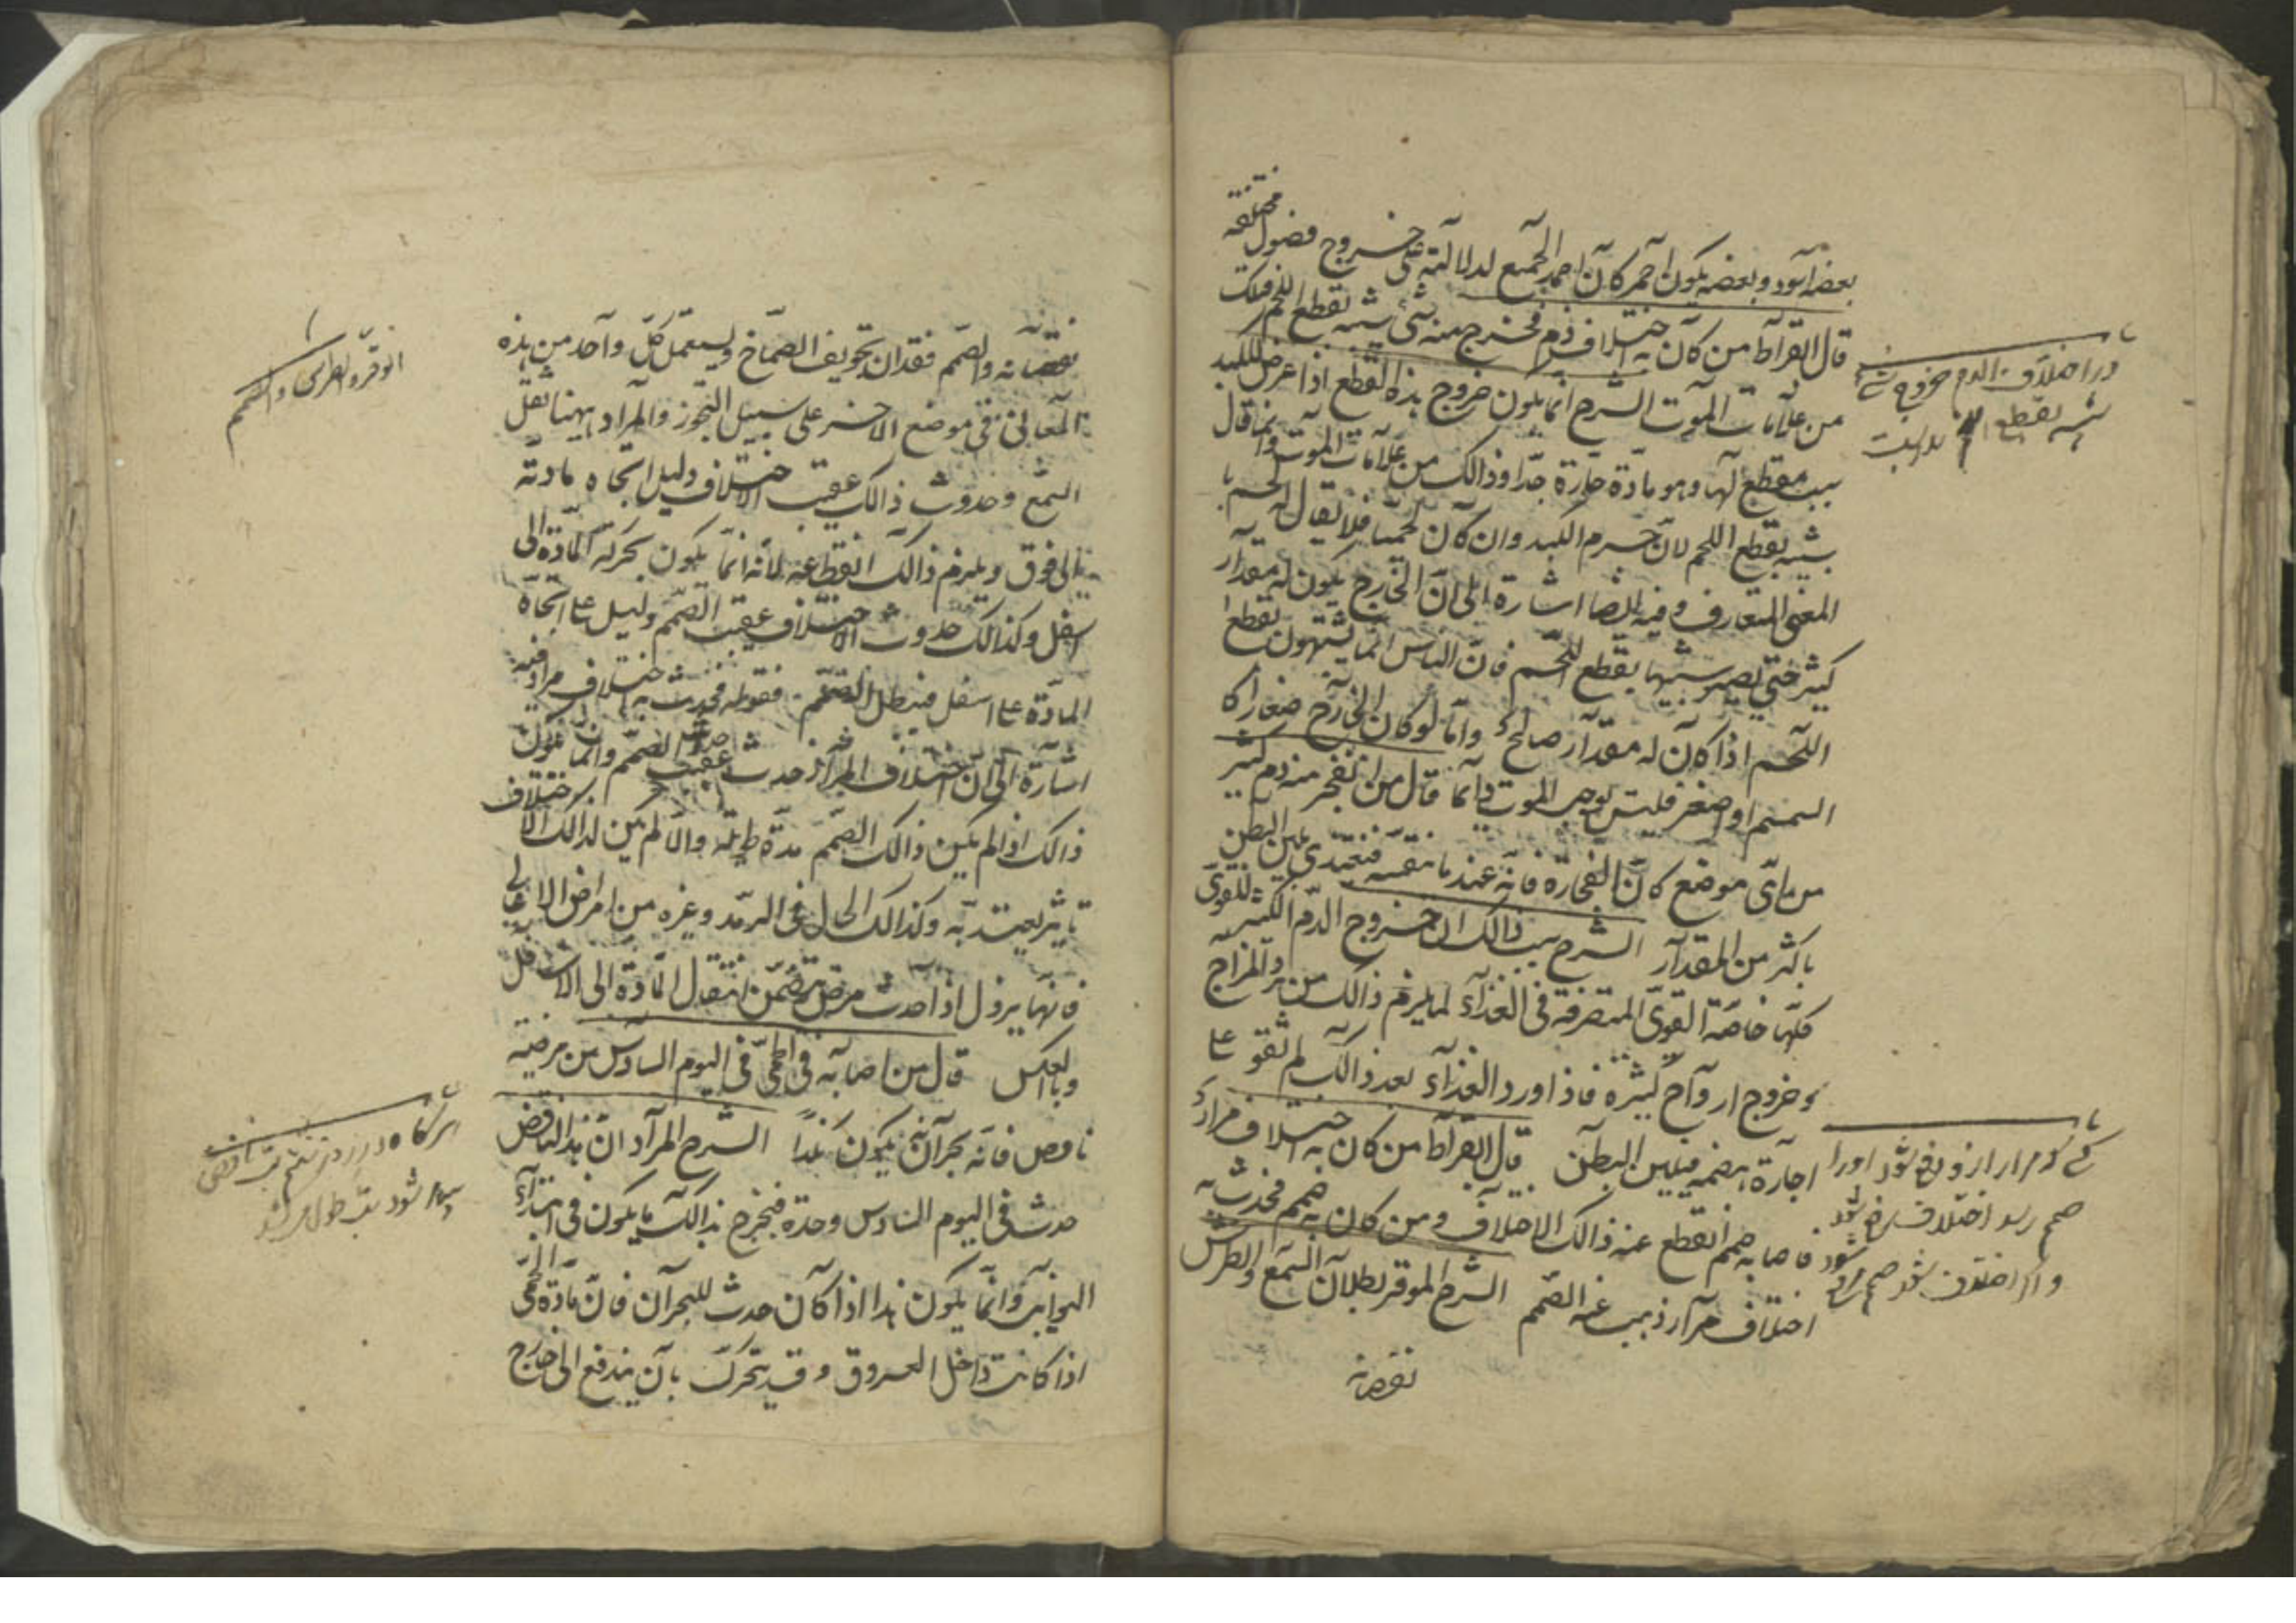 مختلفة
بعضه اسود وبعضه يكون احمر كان احمد الجميع لدلالته على خروج فضول
قال ابقراط من كان به اختلاف دم فخرج منه شئ شبيه بقطع اللحم فتلك
من علامات الموت الشرح انما يكون خروج هذه القطع اذا عرض للكبد
سبب مقطع لها وهو مادة حارة جدا وذالك من علامات الموت وانما قال
شبيه بقطع اللحم لان جرم الكبد وان كان لحميا فلا يقال له لحم
المعنى المتعارف وفيه ايضا اشارة الى ان الخارج يكون له مقدار
كثير حتى يصير شبيها بقطع اللحم فان الناس انما يشبهون بقطع
اللحم اذا كان له مقدار صالح واما لو كان الخارج صغارا كا
السمسم او اصغر فليس يوجب الموت دايما قال من انفجر منه دم كثير
من اى موضع كان انفجاره فانه عند ما ينقه فيغتذى يلين البطن
باكثر من المقدار الشرح سبب ذالك ان خروج الدم الكثير للقوى
كلها خاصة القوى المتصرفة فى الغذاء لما يلزم ذالك من برد المزاج
وخروج ارواح كثيرة فاذا ورد الغذاء بعد ذالك لم تقو على
اجادة هضمه فيلين البطن قال ابقراط من كان به اختلاف مرار
فاصابه صمم انقطع عنه ذالك الاختلاف ومن كان به صمم فحدث به
اختلاف مرار ذهب عنه الصمم الشرح الوقر بطلان السمع والطرش
نقصانه
در اختلاف الدم خروج شئ
شبيه بقطع
كسى كه مرار ازو دفع شود اورا
صمم رسد اختلاف رفع شود
واكر اختلاف شود صمم
نقصانه والصمم فقدان تجويف الصماخ ويستعمل كل واحد من هذه
المعانى فى موضع الاخر على سبيل التجوز والمراد ههنا ثقل
السمع وحدوث ذالك عقيب الاختلاف دليل اتجاه مادته
الى فوق ويلزم ذالك انقطاعه لانه انما يكون بحركة المادة الى
اسفل وكذالك حدوث الاختلاف عقيب الصمم دليل على اتجاه
المادة على اسفل فيبطل الصمم فقوله فحدث به اختلاف مرار فيه
اشارة الى ان اختلاف المرار حدث عقيب حدوث الصمم وانما يكون
ذالك اذا لم يكن ذالك الصمم مدة طويلة والا لم يكن لذالك الاختلاف
تاثير يعتد به وكذالك الحال فى الرمد وغيره من امراض الاعالى
فانها يزول اذا حدث مرض يتضمن انتقال المادة الى الاسافل
وبالعكس قال من اصابه فى الحمى فى اليوم السادس من مرضه
نافض فان بحرانه يكون نكدا الشرح المراد ان هذا النافض
حدث فى اليوم السادس وحده فيخرج بذالك ما يكون فى ابتداء
النوايب وانما يكون نكدا اذا كان حدث للبحران فان مادة الحمى
اذا كانت داخل العروق وقد يتحرك بان يندفع الى خارج
الوقر والطرش والصمم
هركاه در روز ششم تب نافض
پيدا شود